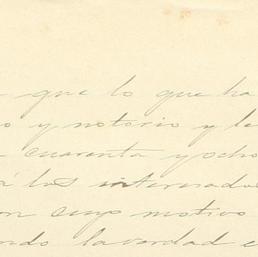 que lo que ha
o y notorio y la
cuarenta y ocho
á los interesados
on cuyo motivo
ndo la verdad e